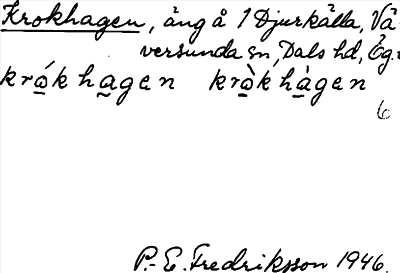 Krokhagen, äng å 1 Djurkälla, Vä-
versunda sn, Dals hd, Ög.
kró̲k ha̲gen krò̲k hà̲gen
6
P.-E. Fredriksson 1946.